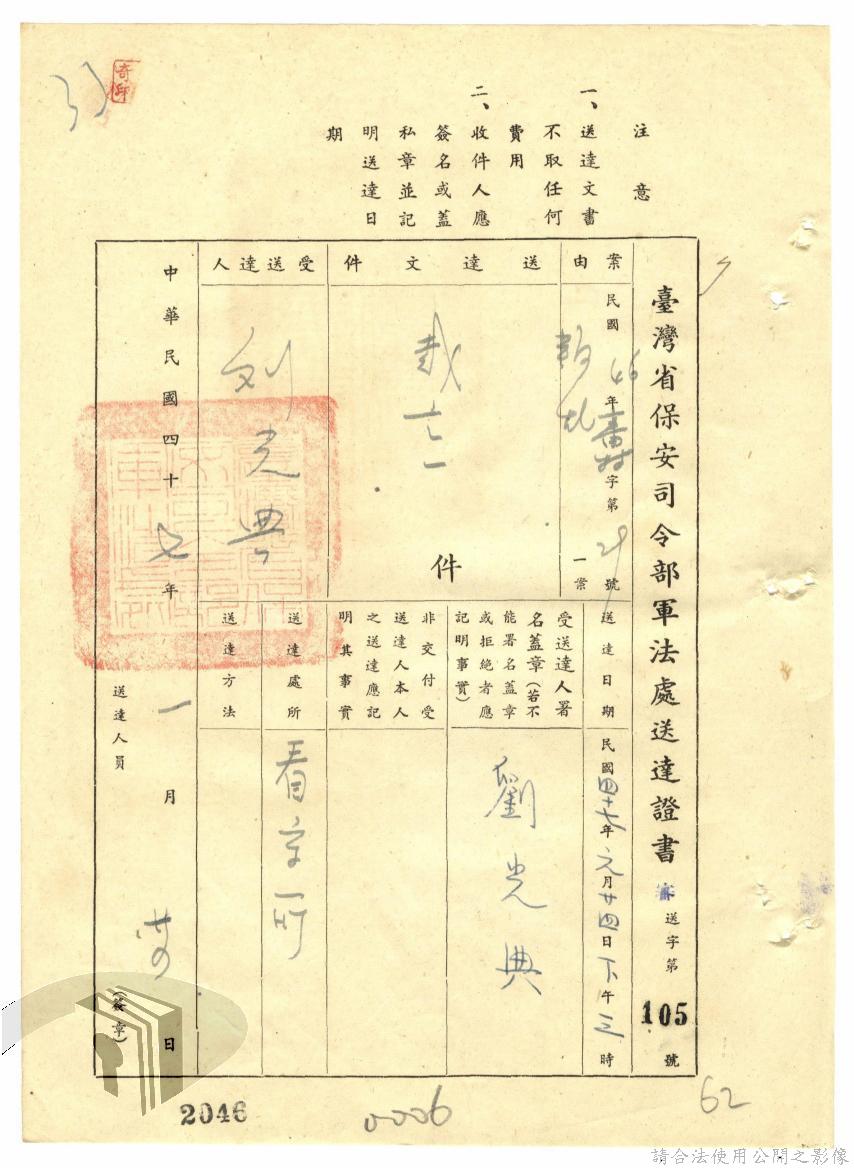 奇
注意
一、送達文書
不取任何
費用
二、收件人應
簽名或蓋
私章並記
明送達日
期
臺灣省保安司令部軍法處送達證書 審送字第105號
案由
民國46年審字第21號
叛亂
一案
送達文件
裁定
件
受送達人
刘光典
送達日期
民國四十七年元月廿四日下午三時
受送達人署
名蓋章(若不
能署名蓋章
或拒絕者應
記明事實)
劉光典
非交付受
送達人本人
之送達應記
明其事實
送達處所
看守所
送達方法
中華民國四十七年一月廿四日
送達人員
(簽章)
2046
0006
62
請合法使用公開之影像